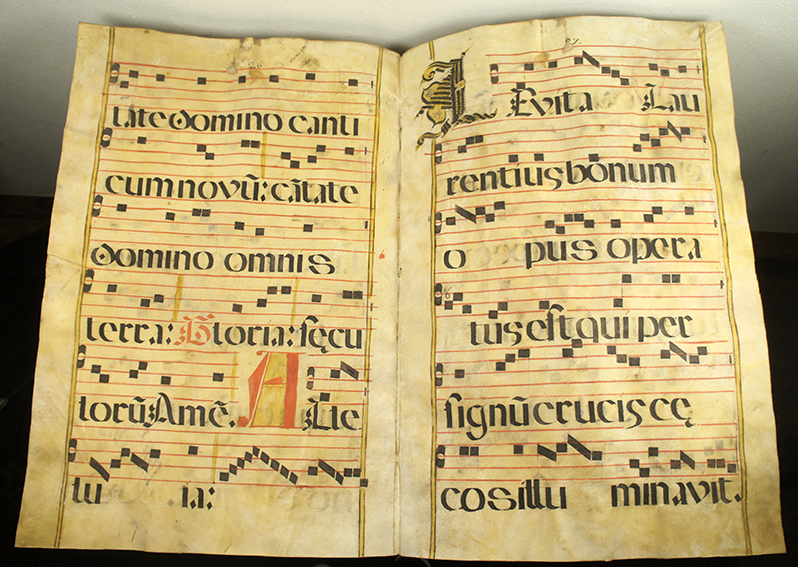 tate domino canti
cum novũ: cãtate
domino omnis
terra: Gloria: sęcu
lorũ Amẽ. A Lle
lu ia:
LEvita Lau
rentius bonum
o pus opera
tus est qui per
signũ crucis cę
cos illu minavit.